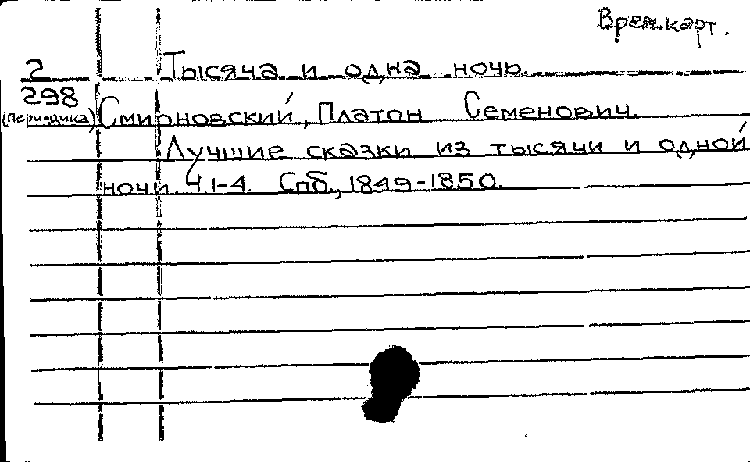 Врем.карт.
2 Тысяча и одна ночь.
298
(периодика) Смирновский, Платон Семенович.
Лучшие сказки из тысячи и одной
ночи. Ч.1-4. Спб., 1849-1850.